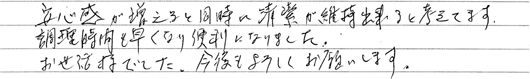 安心感が増えると同時に清潔が維持出来ると考えてます.
調理時間も早くなり便利になりました.
お世話様でした. 今後もよろしくお願いします.